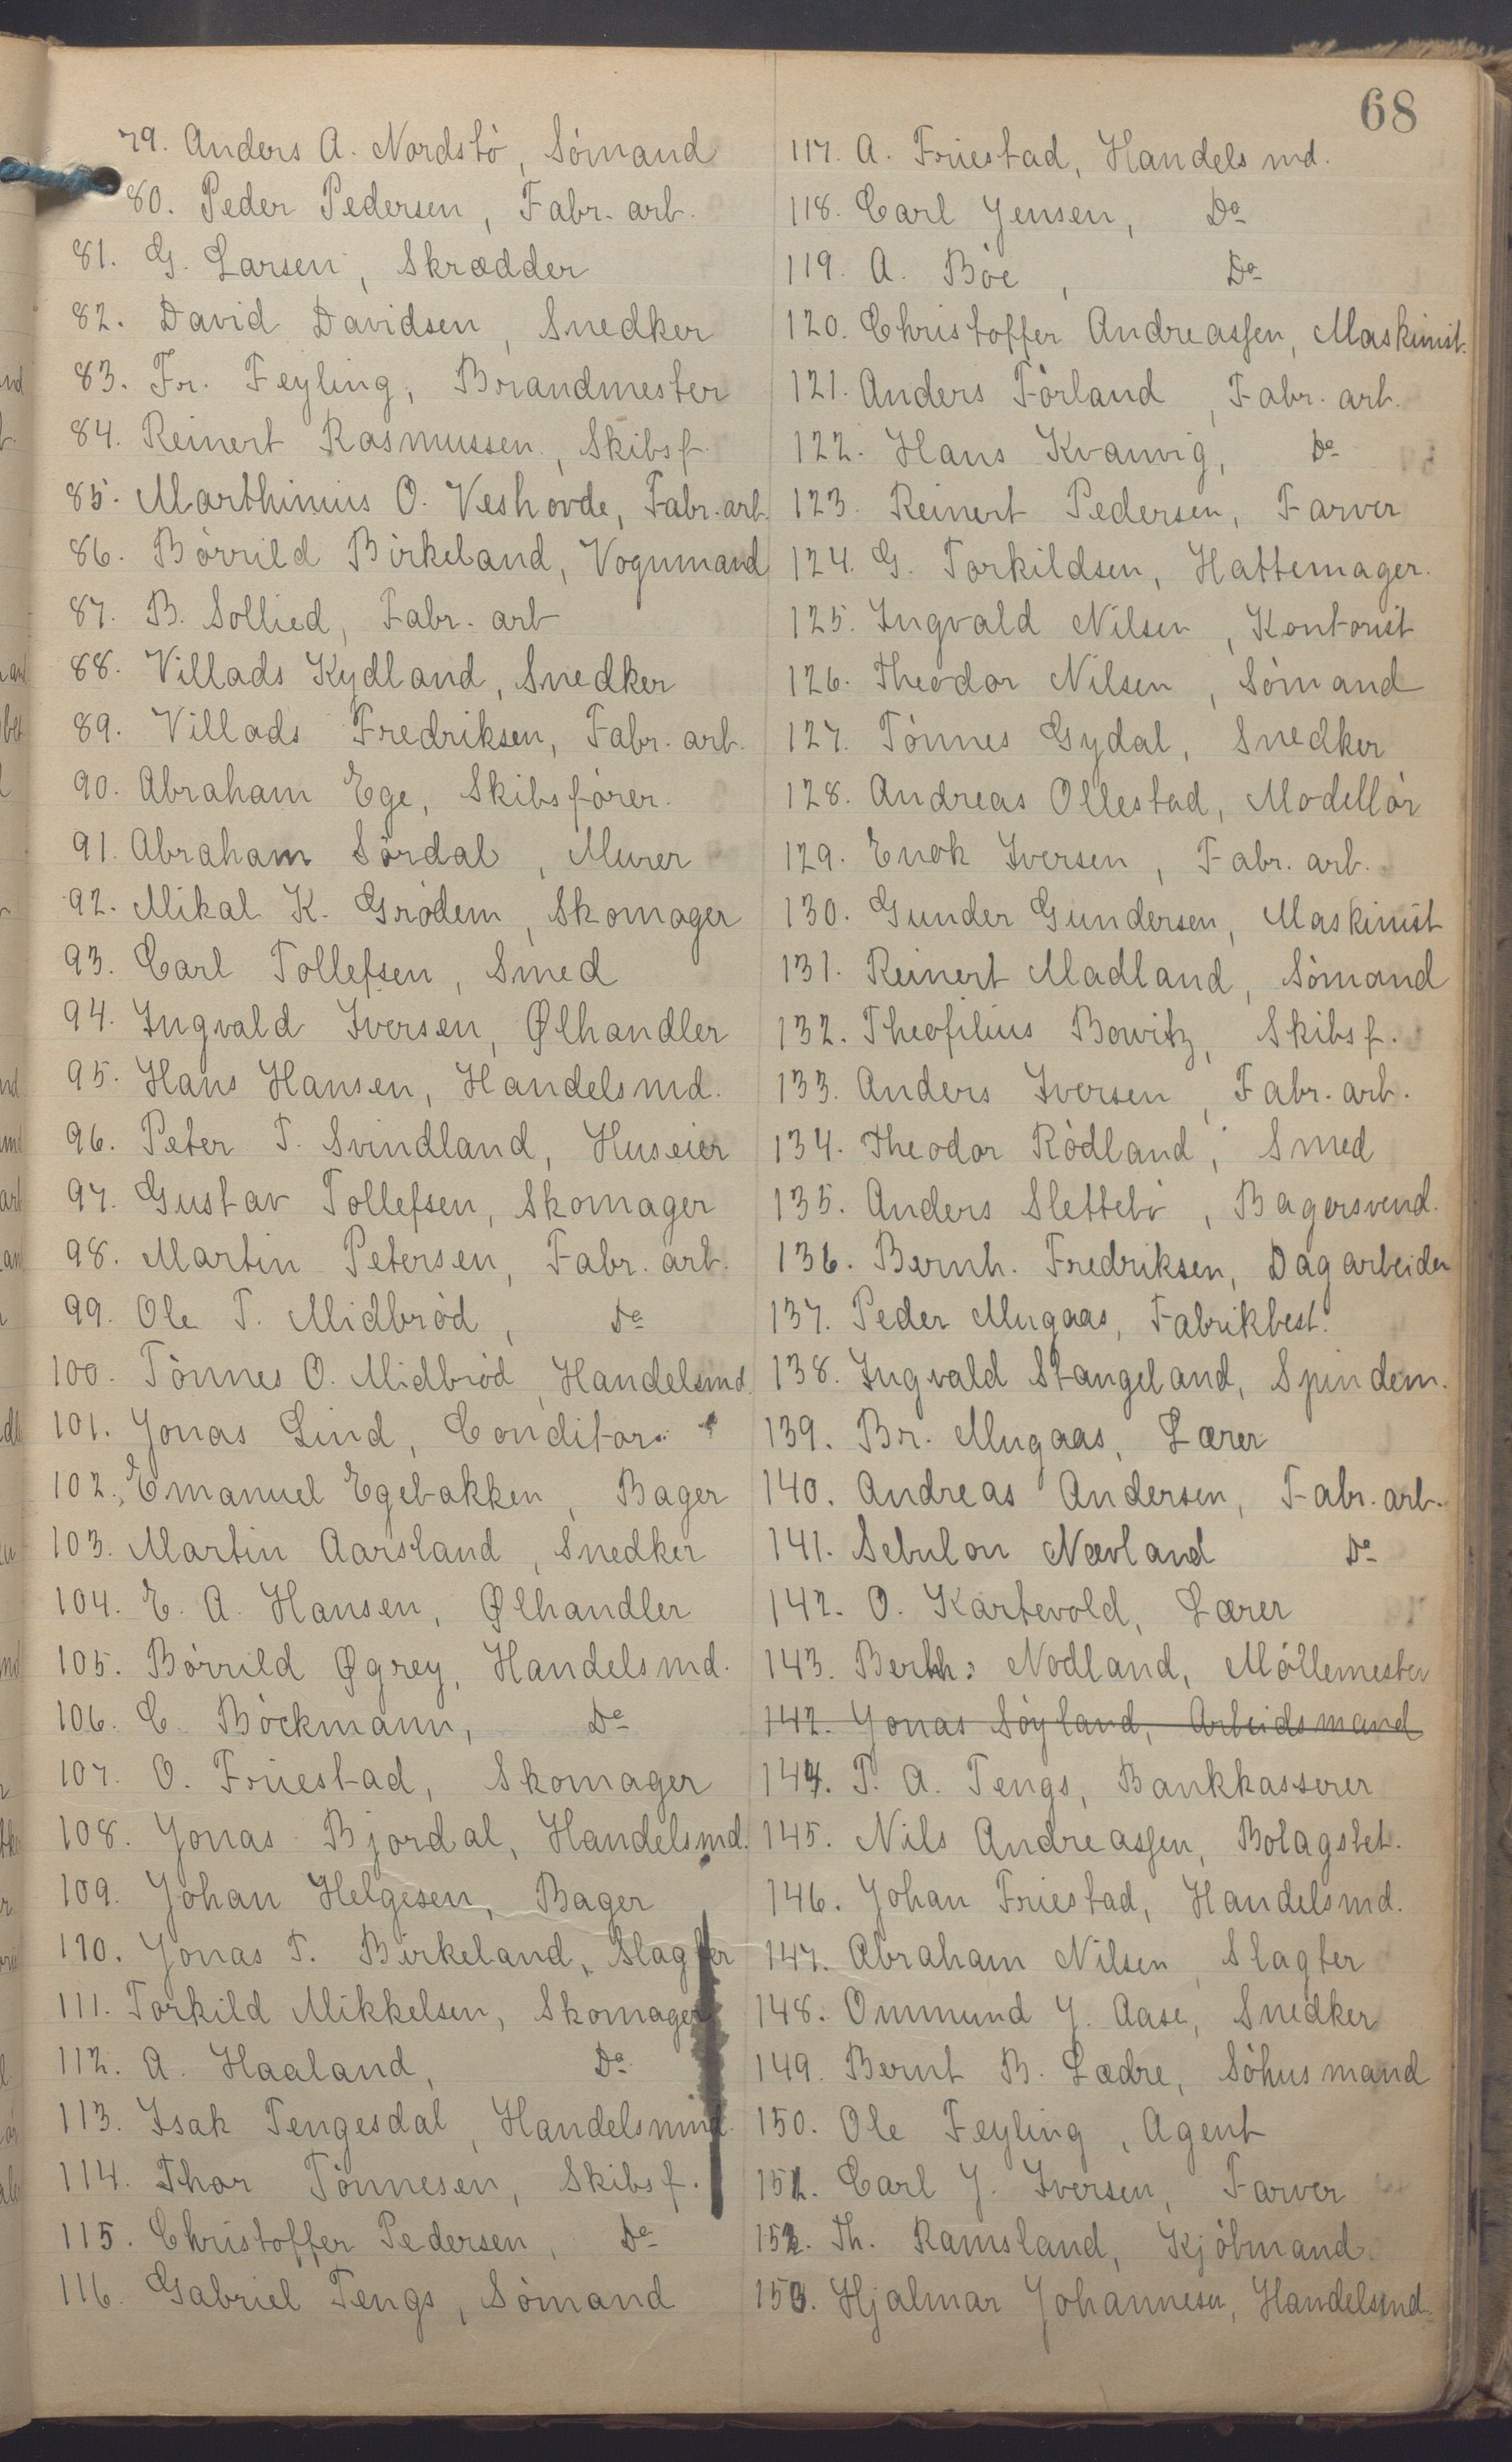 68
79. Anders A. Nordstö, Sömand
80. Peder Pedersen, Fabr. arb.
81. G. Larsen, Skrædder
82. David Davidsen, Snedker
83. Fr. Feyling, Brandmester
84. Reinert Rasmussen, Skibsf.
85. Marthinius O. Veshovde, Fabr. arb.
86. Börrild Birkeland, Vognmand
87. B. Sollied, Fabr. arb
88. Villads Kydland, Snedker
89. Villads Fredriksen, Fabr. arb.
90. Abraham Ege, Skibsförer.
91. Abraham Sördal, Murer
92. Mikal K. Grödem, Skomager
93. Carl Tollefsen, Smed
94. Ingvald Iversen, Ølhandler
95. Hans Hansen, Handelsmd.
96. Peter T. Svindland, Huseier
97. Gustav Tollefsen, Skomager
98. Martin Petersen, Fabr. arb.
99. Ole T. Midbröd, Do
100. Tönnes O. Midbröd, Handelsmd.
101. Jonas Lind, Conditor.
102. Emanuel Egebakken, Bager
103. Martin Aarsland, Snedker
104. E. A. Hansen, Ølhandler
105. Börrild Øgrey, Handelsmd.
106. C. Böckmann, Do
107. O. Friestad, Skomager
108. Jonas Bjordal, Handelsmd.
109. Johan Helgesen, Bager
110. Jonas T. Birkeland, Slagter
111. Torkild Mikkelsen, Skomager
112. A. Haaland, Do
113. Isak Tengesdal, Handelsmnd.
114. Thor Tönnesen, Skibsf.
115. Christoffer Pedersen, Do
116. Gabriel Tengs, Sömand
117. A. Friestad, Handelsmd.
118. Carl Jensen, Do
119. A. Böe, Do
120. Christoffer Andreassen, Maskinist.
121. Anders Törland, Fabr. arb.
122. Hans Kvamvig, Do
123. Reinert Pedersen, Farver
124. G. Torkildsen, Hattemager.
125. Ingvald Nilsen, Kontorist
126. Theodor Nilsen, Sömand
127. Tönnes Gydal, Snedker
128. Andreas Ollestad, Modellör
129. Enok Iversen, Fabr. arb.
130. Gunder Gundersen, Maskinist
131. Reinert Madland, Sömand
132. Theofilius Bowitz, Skibsf.
133. Anders Iversen, Fabr. arb.
134. Theodor Rödland, Smed
135. Anders Slettebö, Bagersvend.
136. Bernh. Fredriksen, Dagarbeider
137. Peder Mugaas, Fabrikbest.
138. Ingvald Stangeland, Spindem.
139. Br. Mugaas, Lærer
140. Andreas Andersen, Fabr. arb.
141. Sebulon Nævland Do
142. O. Kartevold, Lærer
143. Berth: Nodland, Möllemester
142. Jonas Söyland, Arbeidsmand
144. T. A. Tengs, Bankkasserer
145. Nils Andreassen, Bolagsbet.
146. Johan Friestad, Handelsmd.
147. Abraham Nilsen, Slagter
148. Ommund J. Aase, Snedker
149. Bernt B. Lædre, Söhusmand
150. Ole Feyling, Agent
151. Carl J. Iversen, Farver
152. Th. Ramsland, Kjöbmand.
153. Hjalmar Johannesen, Handelsmd.